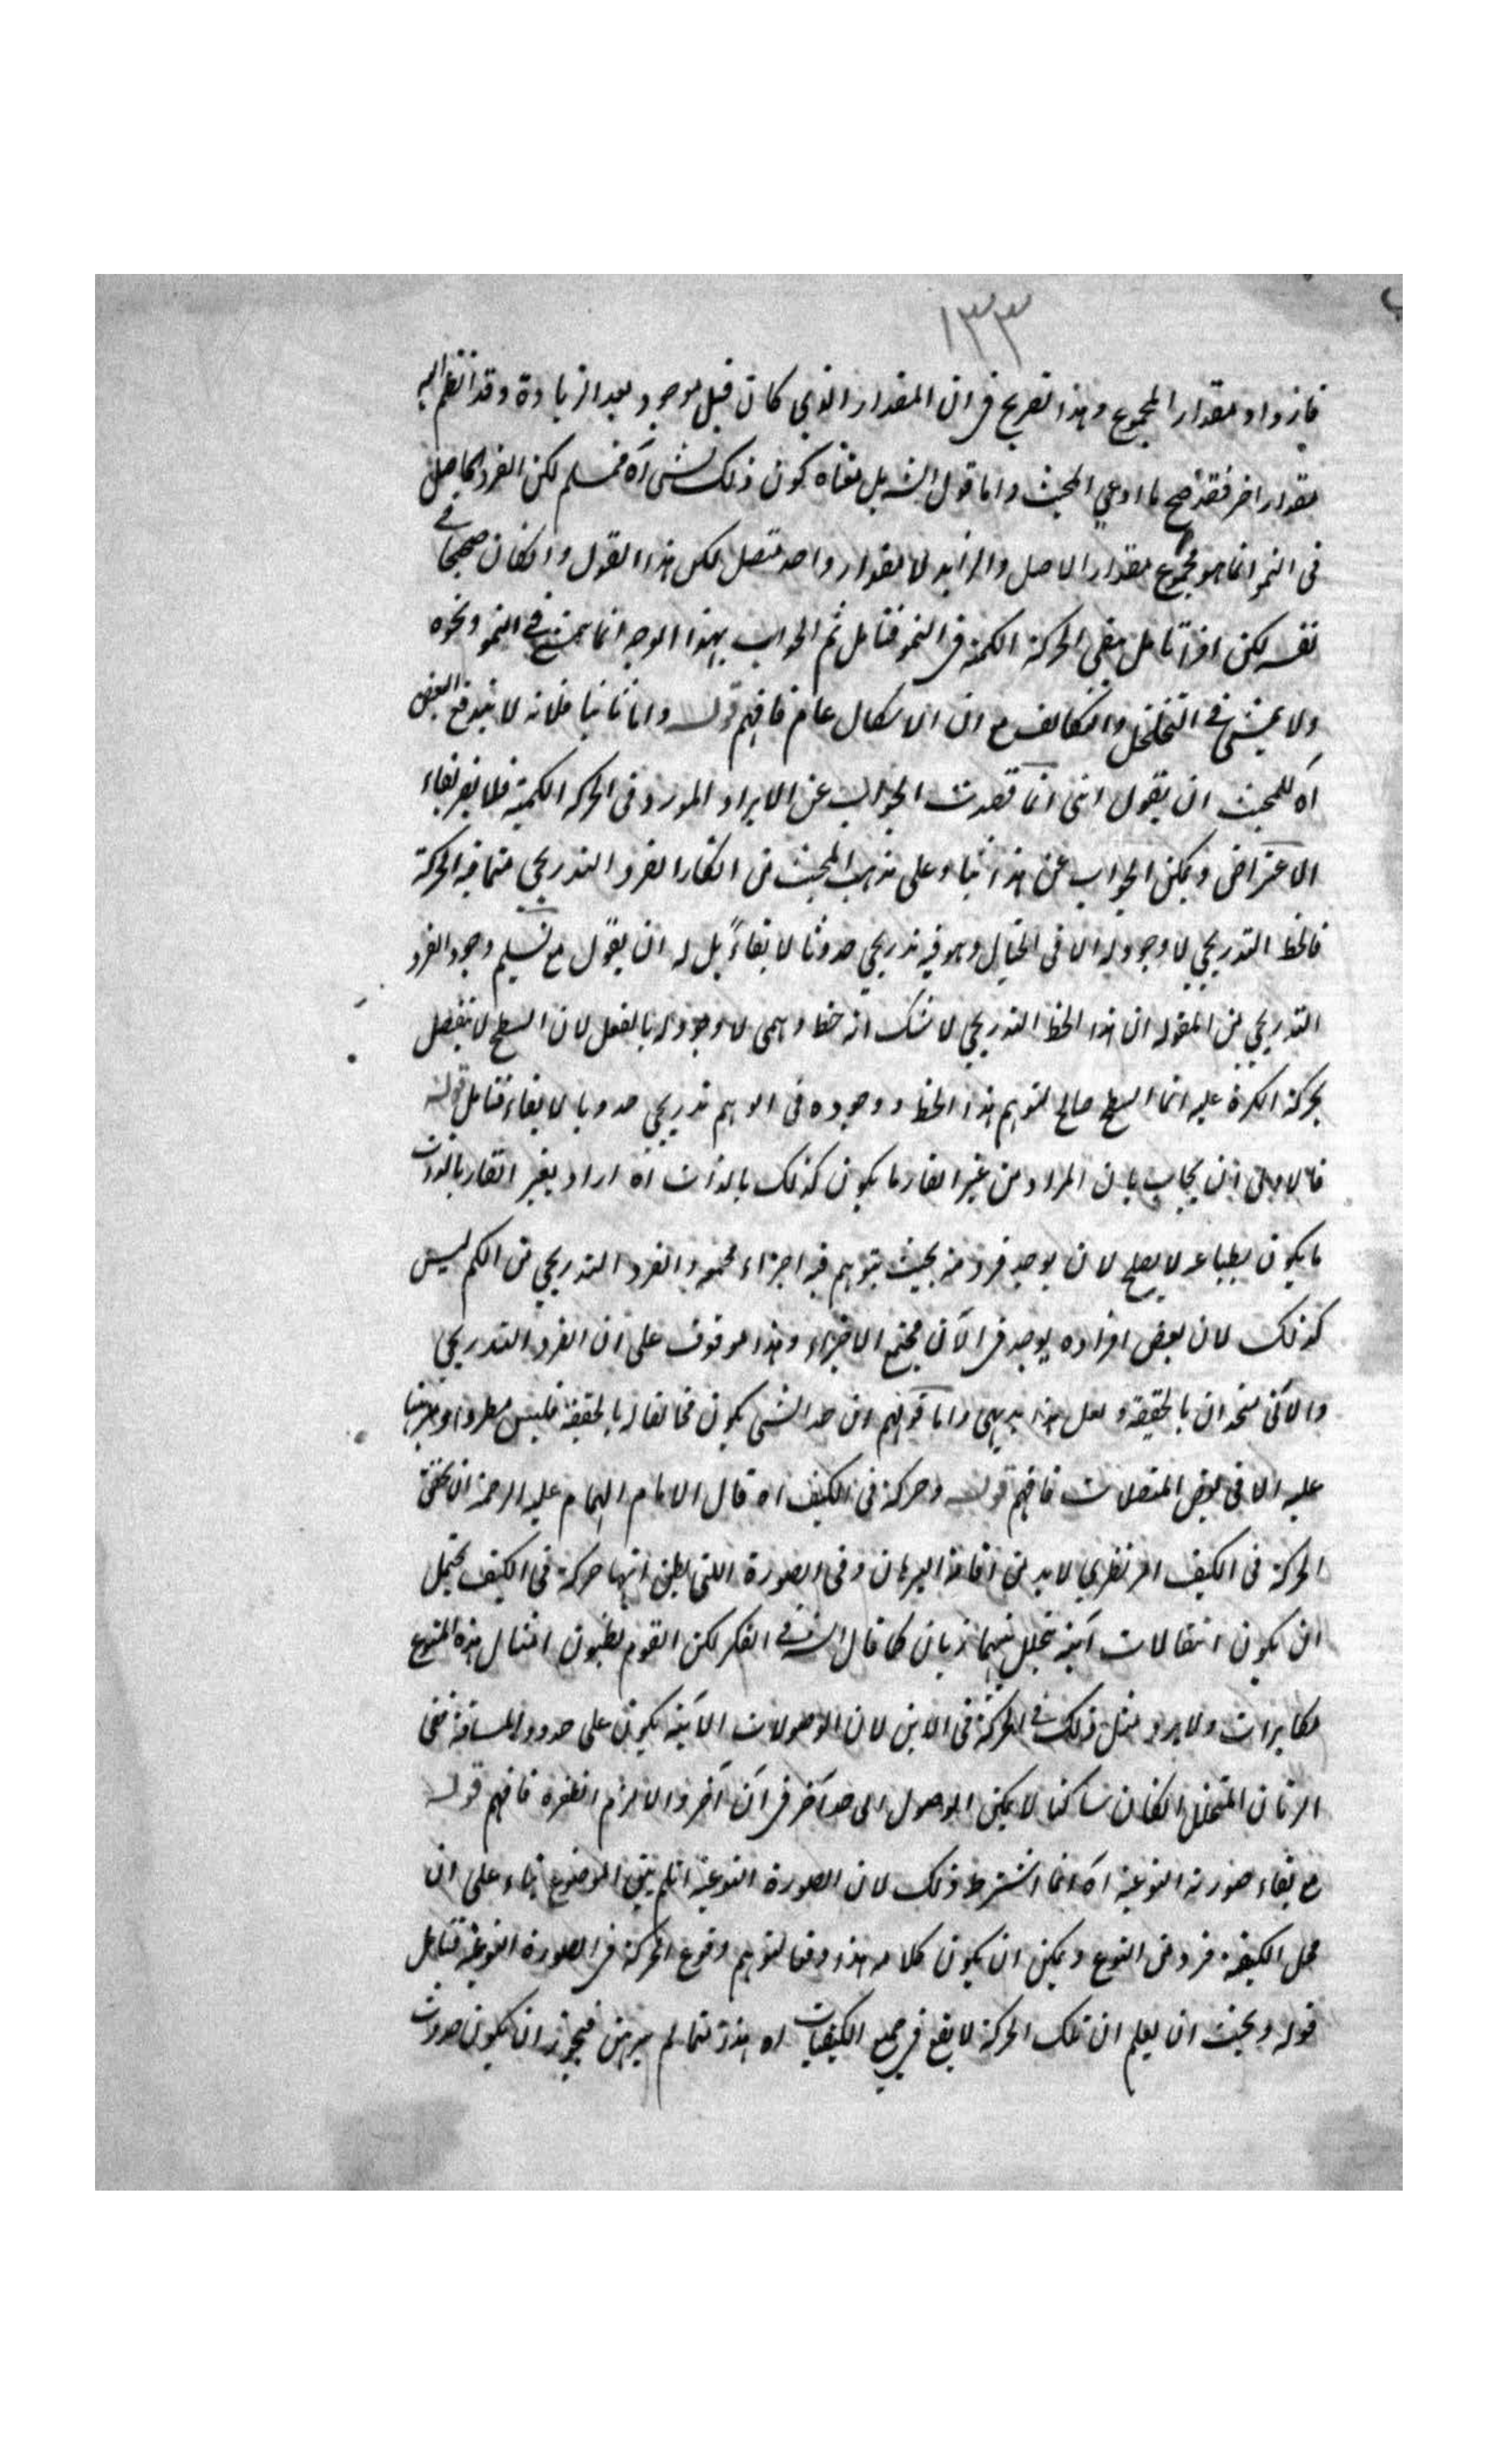 ١٣٣
فازداد مقدار المجموع وهذا تصريح في ان المقدار الذي كان قبل موجود بعد الزيادة وقد انضم اليه
مقدار اخر فقد صح ما ادعى المجيب واما قول الش بل معناه كون ذلك الشئ آه فمسلم لكن الفرد الحاصل
فى النمو انما هو مجموع مقدار الاصل والزايد لا مقدار واحد متصل لكن هذا القول وانكان صحيحا فى
نفسه لكن اذا تامل ينفى الحركة الكمية في النمو فتامل ثم الجواب بهذا الوجه انما يتمشى فى النمو ونحوه
ولا يتمشى فى التخلخل والتكاثف مع ان الاشكال عام فافهم قوله واما ثانيا فلانه لا يندفع النقض
آه للمجيب ان يقول انى انما قصدت الجواب عن الايراد المورد فى الحركة الكمية فلا يضر بقاء
الاعتراض ويمكن الجواب عن هذا بناء على مذهب المجيب من انكار الفرد التدريجي مما فيه الحركة
فالخط التدريجي لا وجود له الا فى الخيال وهو فيه تدريجي حدوثا لا بقاءً بل له ان يقول مع تسليم وجود الفرد
التدريجي من المقولة ان هذا الخط التدريجي لا شك انه خط وهمى لا وجود له بالفعل لان السطح لا ينفصل
بحركة الكرة عليه انما السطح صالح لتوهم هذا الخط ووجوده فى الوهم تدريجي حدوثا لا بقاء فتامل قوله
فالاولى ان يجاب بان المراد من غير القار ما يكون كذلك بالذات آه اراد بغير القار بالذات
ما يكون بطباعه لا يصلح لان يوجد فرد منه بحيث يتوهم فيه اجزاء مجتمعة والفرد التدريجي من الكم ليس
كذلك لان بعض افراده يوجد في الآن مجتمع الاجزاء وهذا موقوف على ان الفرد التدريجي
والآنى متحدان بالحقيقة ولعل هذا بديهى واما قولهم ان حد الشئ يكون مخالفا له بالحقيقة فليس مطردا ومبرهنا
عليه الا فى بعض المتصلات فافهم قوله وحركة فى الكيف اه قال الامام الهمام عليه الرحمة ان تحقق
الحركة فى الكيف امر نظري لابد من اقامة البرهان وفى الصورة التى يظن انها حركة فى الكيف يحتمل
ان يكون انتقالات آنية تخلل بينها زمان كما قال الش فى الفكر لكن القوم يظنون امثال هذه المنوع
مكابرات ولا يرد مثل ذلك فى الحركة فى الاين لان الوصولات الآنية يكون على حدود المسافة ففى
الزمان المتخلل انكان ساكنا لا يمكن الوصول الى حد آخر فى آن آخر والا لزم الطفرة فافهم قوله
مع بقاء صورته النوعية اه انما اشترط ذلك لان الصورة النوعية ان لم يبق الموضوع بناء على ان
محل الكيفية فرد من النوع ويمكن ان يكون كلامه هذا دفعا لتوهم وقوع الحركة فى الصورة النوعية فتامل
قوله ويجب ان يعلم ان تلك الحركة لا يقع في جميع الكيفيات اه هذا مما لم يبرهن فيجوز ان يكون حدوث